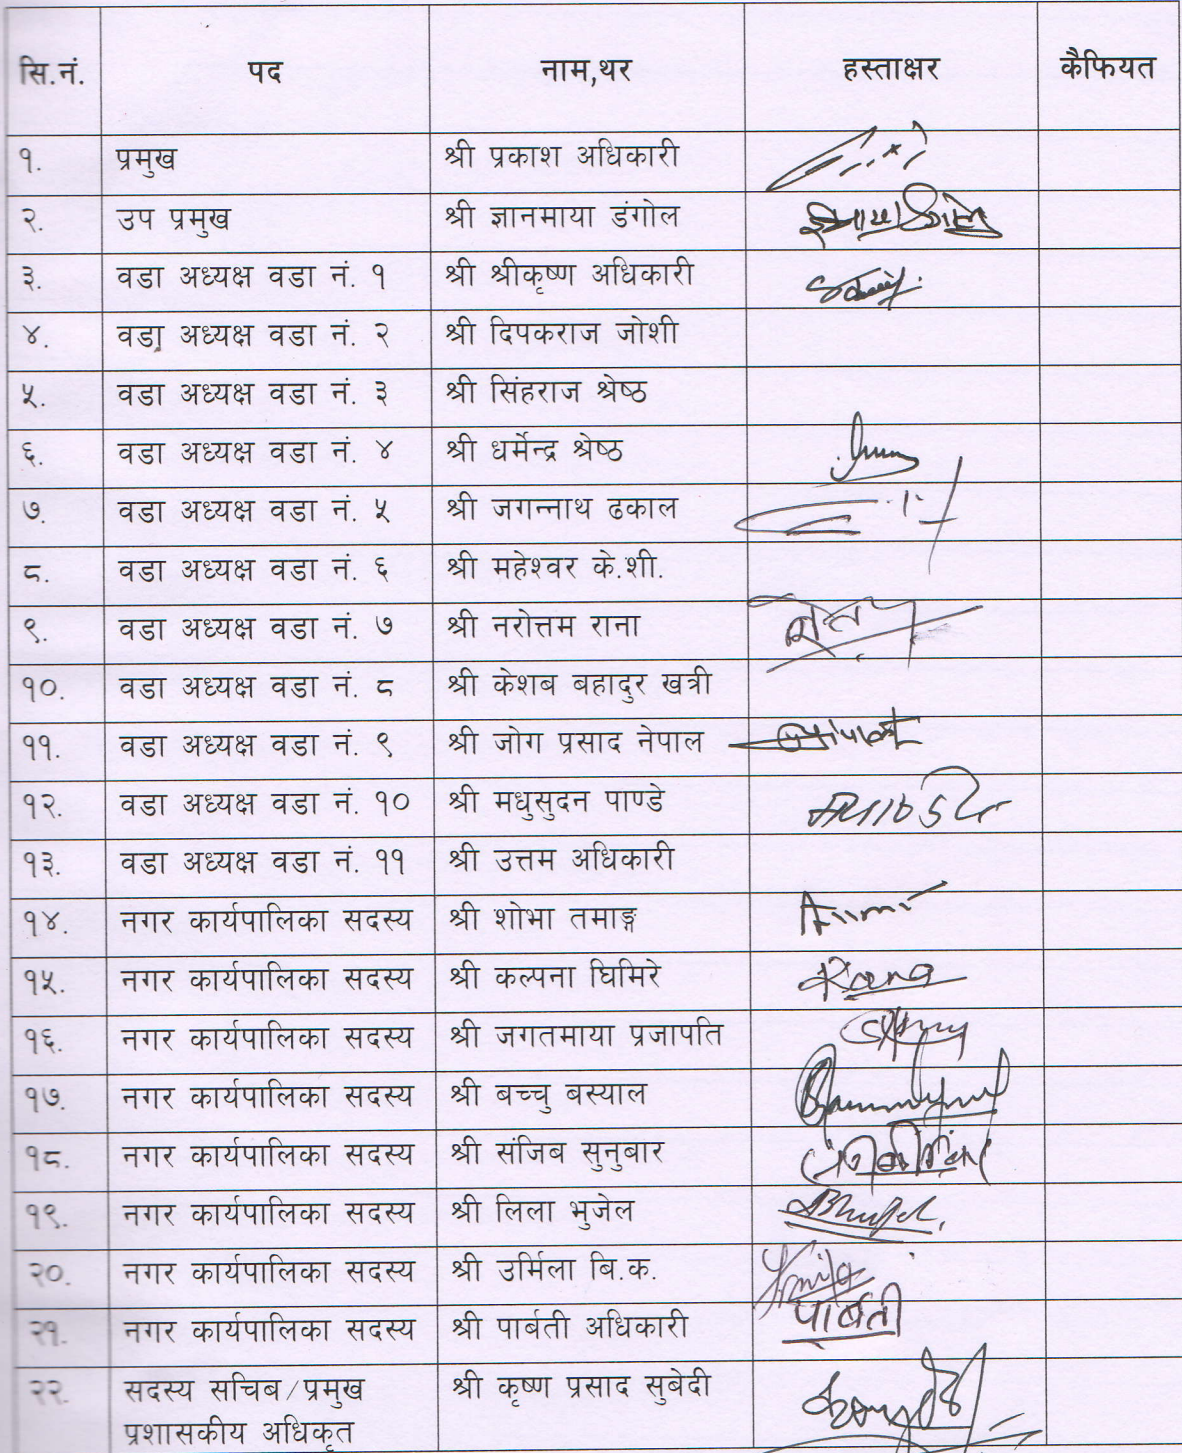 सि.नं. पद नाम,थर हस्ताक्षर कैफियत
१. प्रमुख श्री प्रकाश अधिकारी
२. उप प्रमुख श्री ज्ञानमाया डंगोल
३. वडा अध्यक्ष वडा नं. १ श्री श्रीकृष्ण अधिकारी
४. वडा अध्यक्ष वडा नं. २ श्री दिपकराज जोशी
५. वडा अध्यक्ष वडा नं. ३ श्री सिंहराज श्रेष्ठ
६. वडा अध्यक्ष वडा नं. ४ श्री धर्मेन्द्र श्रेष्ठ
७. वडा अध्यक्ष वडा नं. ५ श्री जगन्नाथ ढकाल
८. वडा अध्यक्ष वडा नं. ६ श्री महेश्वर के.शी.
९. वडा अध्यक्ष वडा नं. ७ श्री नरोत्तम राना
१०. वडा अध्यक्ष वडा नं. ८ श्री केशब बहादुर खत्री
११. वडा अध्यक्ष वडा नं. ९ श्री जोग प्रसाद नेपाल
१२. वडा अध्यक्ष वडा नं. १० श्री मधुसुदन पाण्डे
१३. वडा अध्यक्ष वडा नं. ११ श्री उत्तम अधिकारी
१४. नगर कार्यपालिका सदस्य श्री शोभा तमाङ्ग
१५. नगर कार्यपालिका सदस्य श्री कल्पना घिमिरे
१६. नगर कार्यपालिका सदस्य श्री जगतमाया प्रजापति
१७. नगर कार्यपालिका सदस्य श्री बच्चु बस्याल
१८. नगर कार्यपालिका सदस्य श्री संजिब सुनुबार
१९. नगर कार्यपालिका सदस्य श्री लिला भुजेल
२०. नगर कार्यपालिका सदस्य श्री उर्मिला बि.क.
२१. नगर कार्यपालिका सदस्य श्री पार्बती अधिकारी पार्बती
२२. सदस्य सचिब/प्रमुख श्री कृष्ण प्रसाद सुबेदी
प्रशासकीय अधिकृत